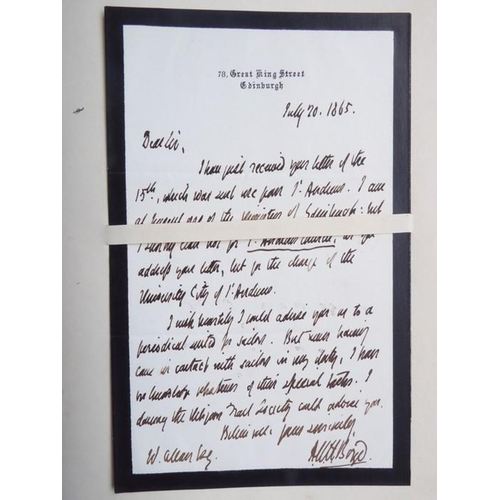 78, Great King Street
Edinburgh
July 20. 1865.
Dear Sir,
I have just received your letter of the
15th, which was sent me from St Andrews. I am
at present one of the ministers of Edinburgh: but
I shortly leave not for St Andrews Church, as you
address your letter, but for the charge of the
University City of St Andrews.
I wish heartily I could advise you as to a
periodical suited for sailors. But never having
come in contact with sailors in my duty, I have
no knowledge whatever of their special tastes. I
daresay the Religious Tract Society could advise you.
Believe me, yours sincerely,
W. Allan Esq.
A.K.H. Boyd